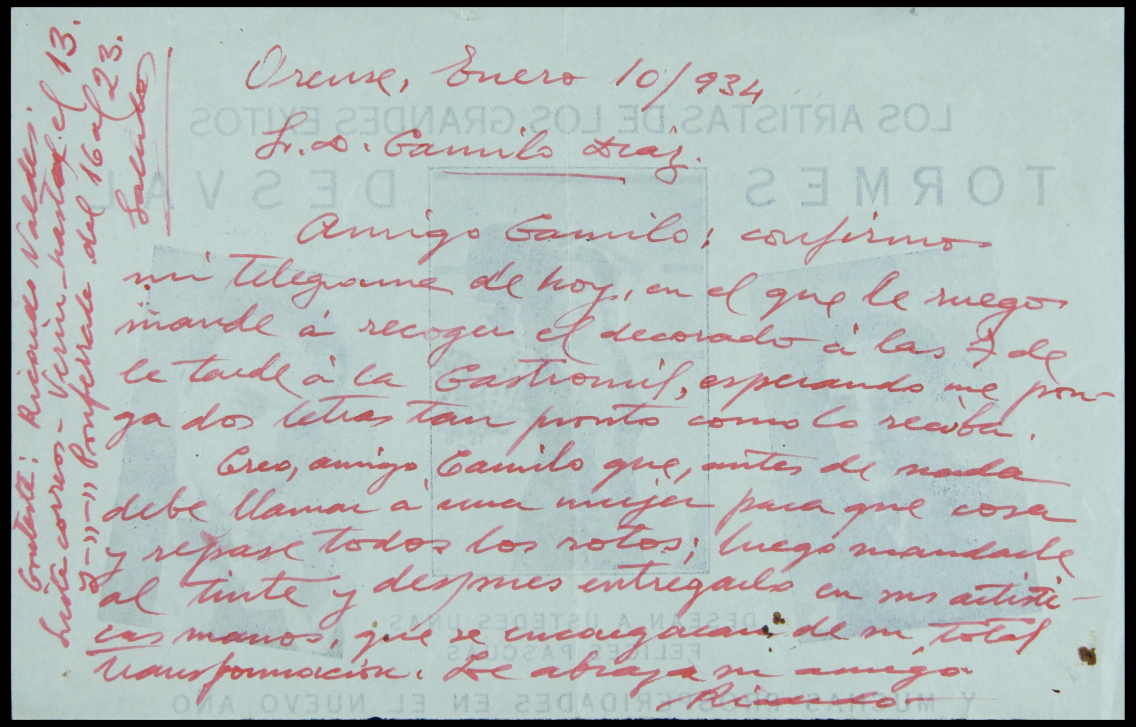 Orense, Enero 10/934
Sr. D. Camilo Diaz.
Amigo Camilo: confirmo
mi telegrama de hoy, en el que le ruego
mande á recoger el decorado á las 7 de
la tarde á la Castromil, esperando me pon-
ga dos letras tan pronto como lo reciba.
Creo, amigo Camilo que, antes de nada
debe llamar á una mujer para que cosa
y repase todos los rotos; luego mandarle
al tinte y despues entregarlo en sus artisti-
cas manos, que se encargaran de su total
transformación. Le abraza su amigo
Ricardo
Contesta: Ricardo Valdés.
Lista correos - Verin - hasta el 13.
" - " - " Ponferrada del 16 al 23.
Saludos
LOS ARTISTAS DE LOS GRANDES EXITOS
TORMES DESVAL
DESEAN A USTEDES UNAS
FELICES PASCUAS
Y MUCHAS PROSPERIDADES EN EL NUEVO AÑO